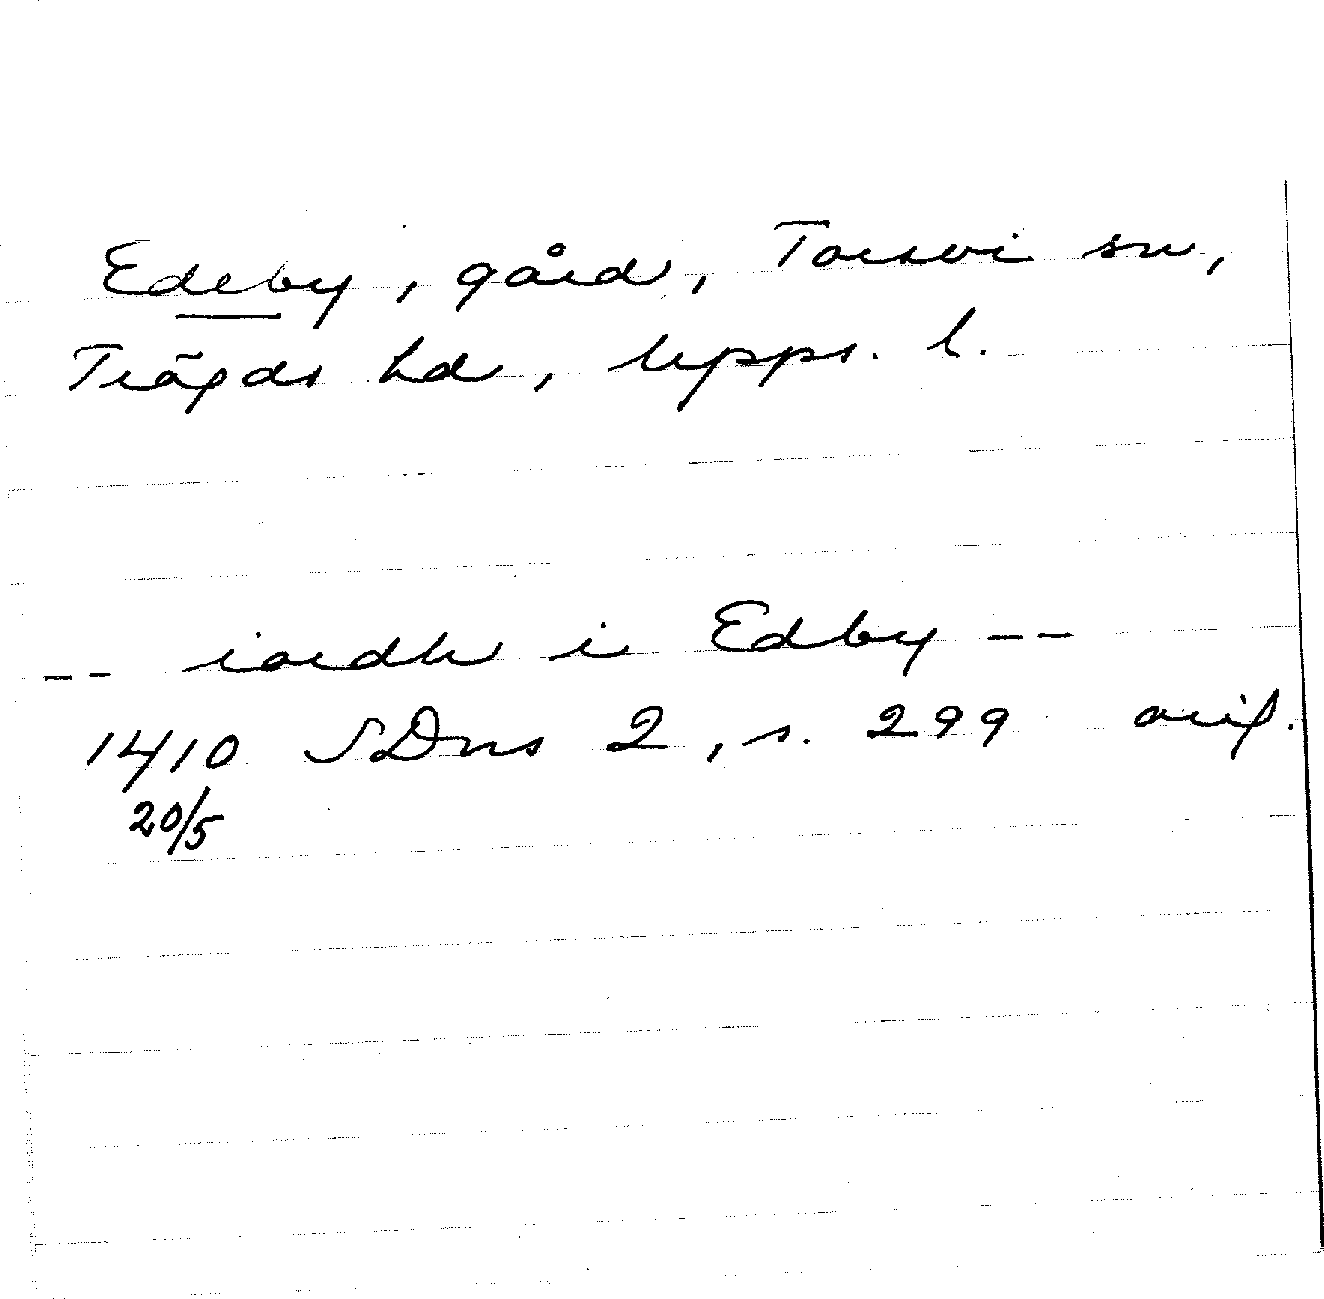 Edeby, gård, Torsvi sn,
Trögds hd, Upps. l.
-- iordh i Edby --
1410 SDns 2, s. 299 orig.
20/5